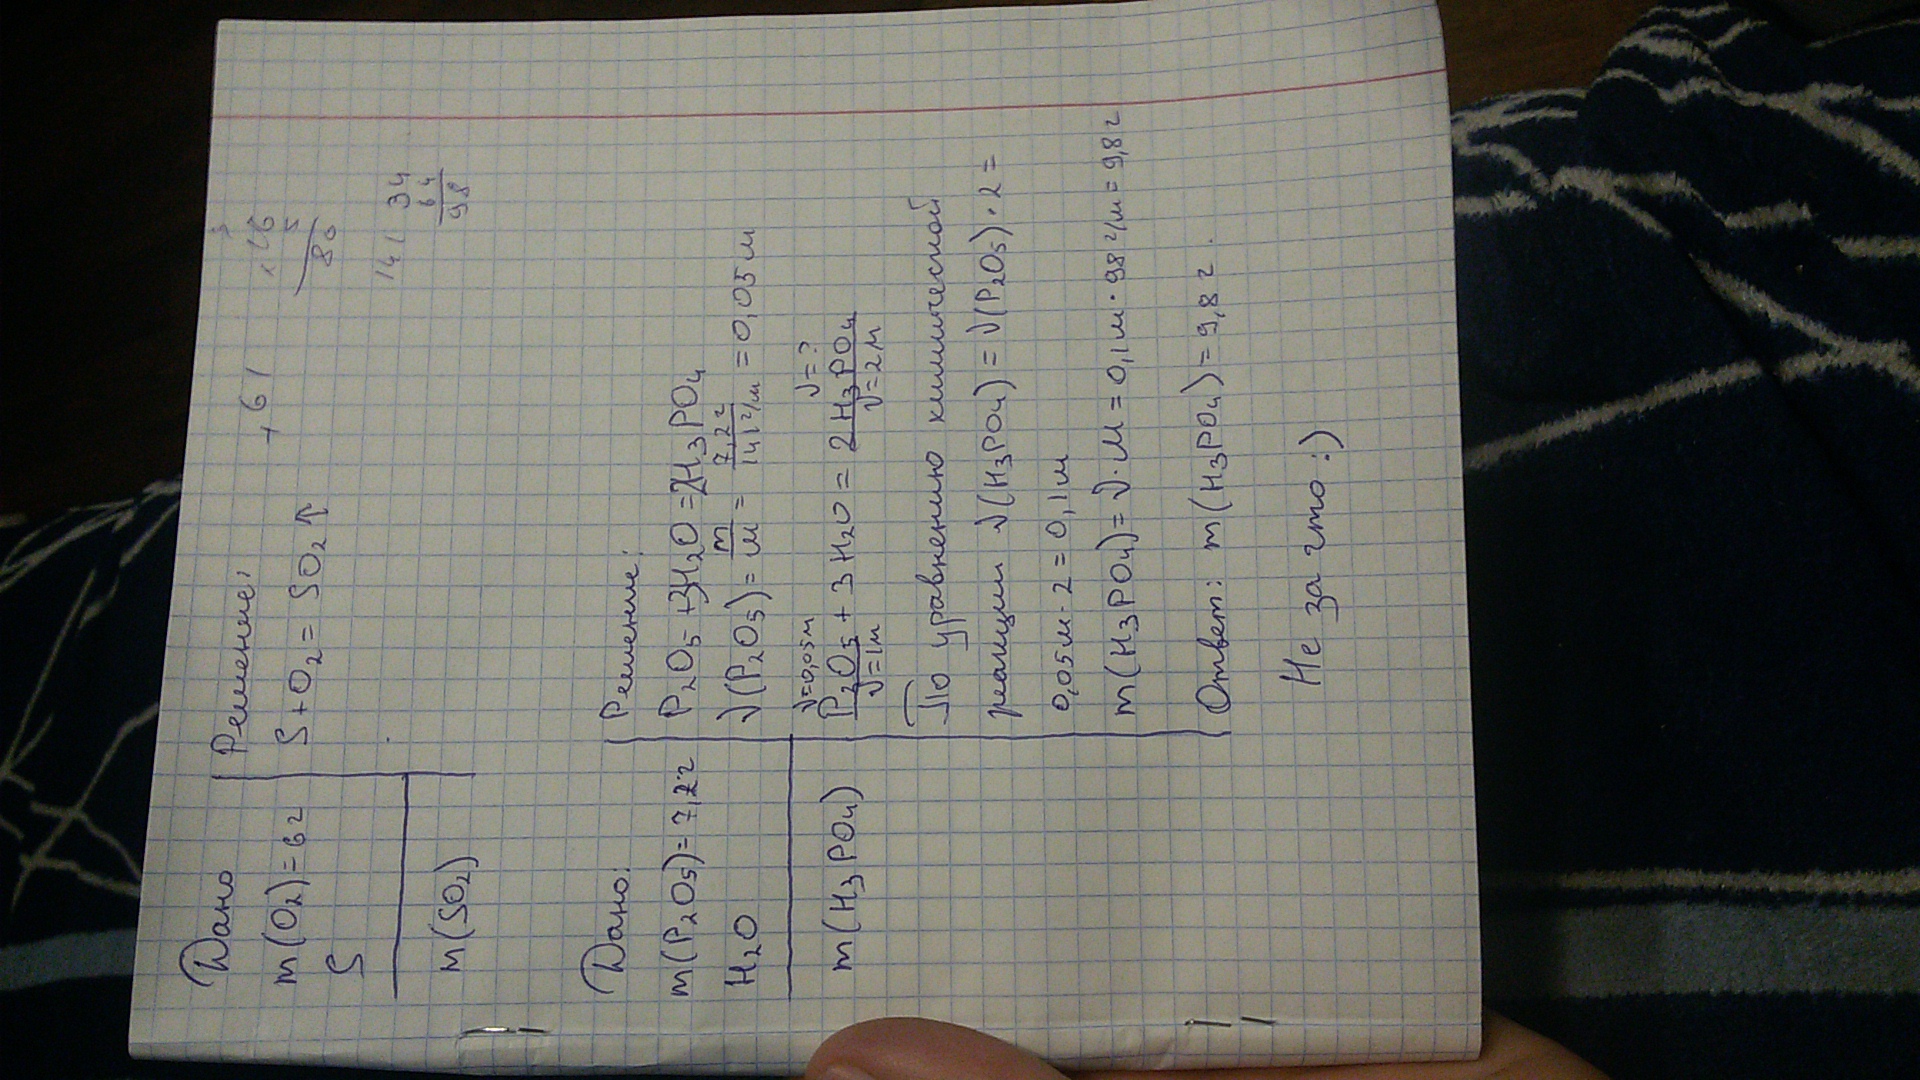 Дано
Решение:
m(O2)=6г
S+O2=SO2↑
S
m(SO2)
+61
×16
5
80
141
34
64
98
Дано:
Решение:
m(P2O5)=7,2г
P2O5+3H2O=2H3PO4
H2O
ν(P2O5)=m/M=7,2г/141г/м=0,05м
m(H3PO4)
ν=0,05м ν=?
P2O5+3H2O=2H3PO4
ν=1м ν=2м
По уравнению химической
реакции ν(H3PO4)=ν(P2O5)·2=
0,05м·2=0,1м
m(H3PO4)=ν·M=0,1м·98г/м=9,8г
Ответ: m(H3PO4)=9,8г.
Не за что:)